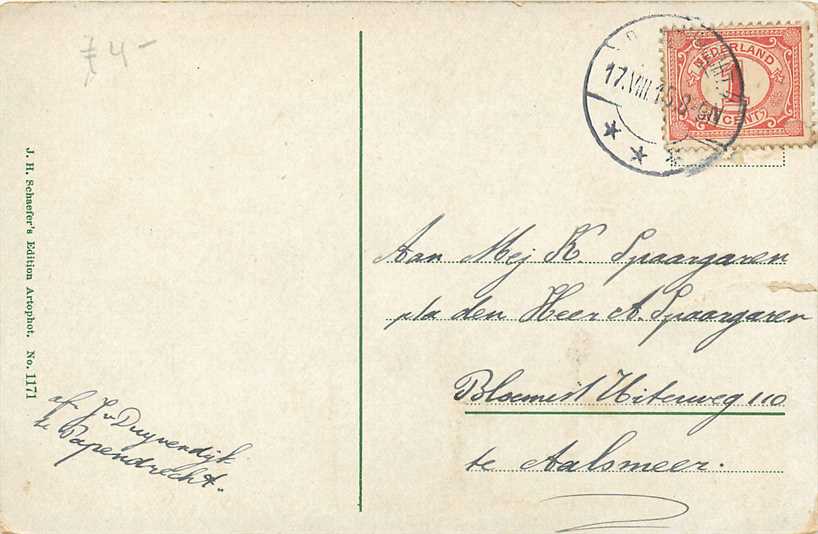 J. H. Schaefer's Edition Artophot. No. 1171
af. J v Duyvendijk
te Papendrecht.
17.VIII.
NEDERLAND
1
CENT
Aan Mej K. Spaargaren
p/a den Heer A. Spaargaren
Bloemist Uiterweg 110
te Aalsmeer.